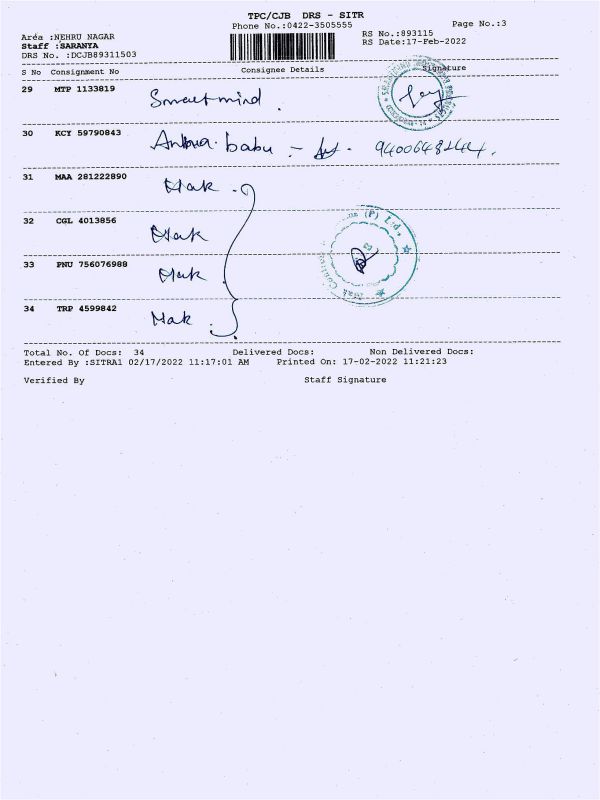 TPC/CJB DRS - SITR
Phone No.:0422-3505555
Page No.:3
Area :NEHRU NAGAR
RS No.:893115
Staff :SARANYA
RS Date:17-Feb-2022
DRS No. :DCJB89311503
S No Consignment No Consignee Details Signature
29 MTP 1133819 Smartmind.
30 KCY 59790843 babu -
31 MAA 281222890 Mak.
32 CGL 4013856 Mak
33 PNU 756076988 Mak.
34 TRP 4599842 Mak.
(P) Ltd.,
Total No. Of Docs: 34 Delivered Docs: Non Delivered Docs:
Entered By :SITRA1 02/17/2022 11:17:01 AM Printed On: 17-02-2022 11:21:23
Verified By Staff Signature